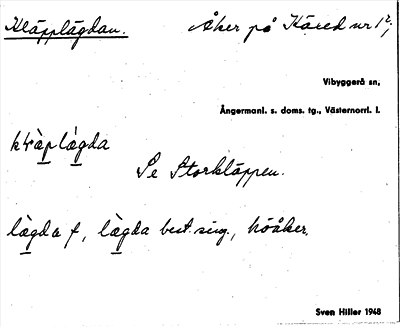 Kläpplägdan. Åker på Käxed nr 1²;
Vibyggerå sn,
Ångermanl. s. doms. tg., Västernorrl. l.
klàp làgda
Se Storkläppen.
làgda f, làgda best. sing., höåker.
Sven Hiller 1948